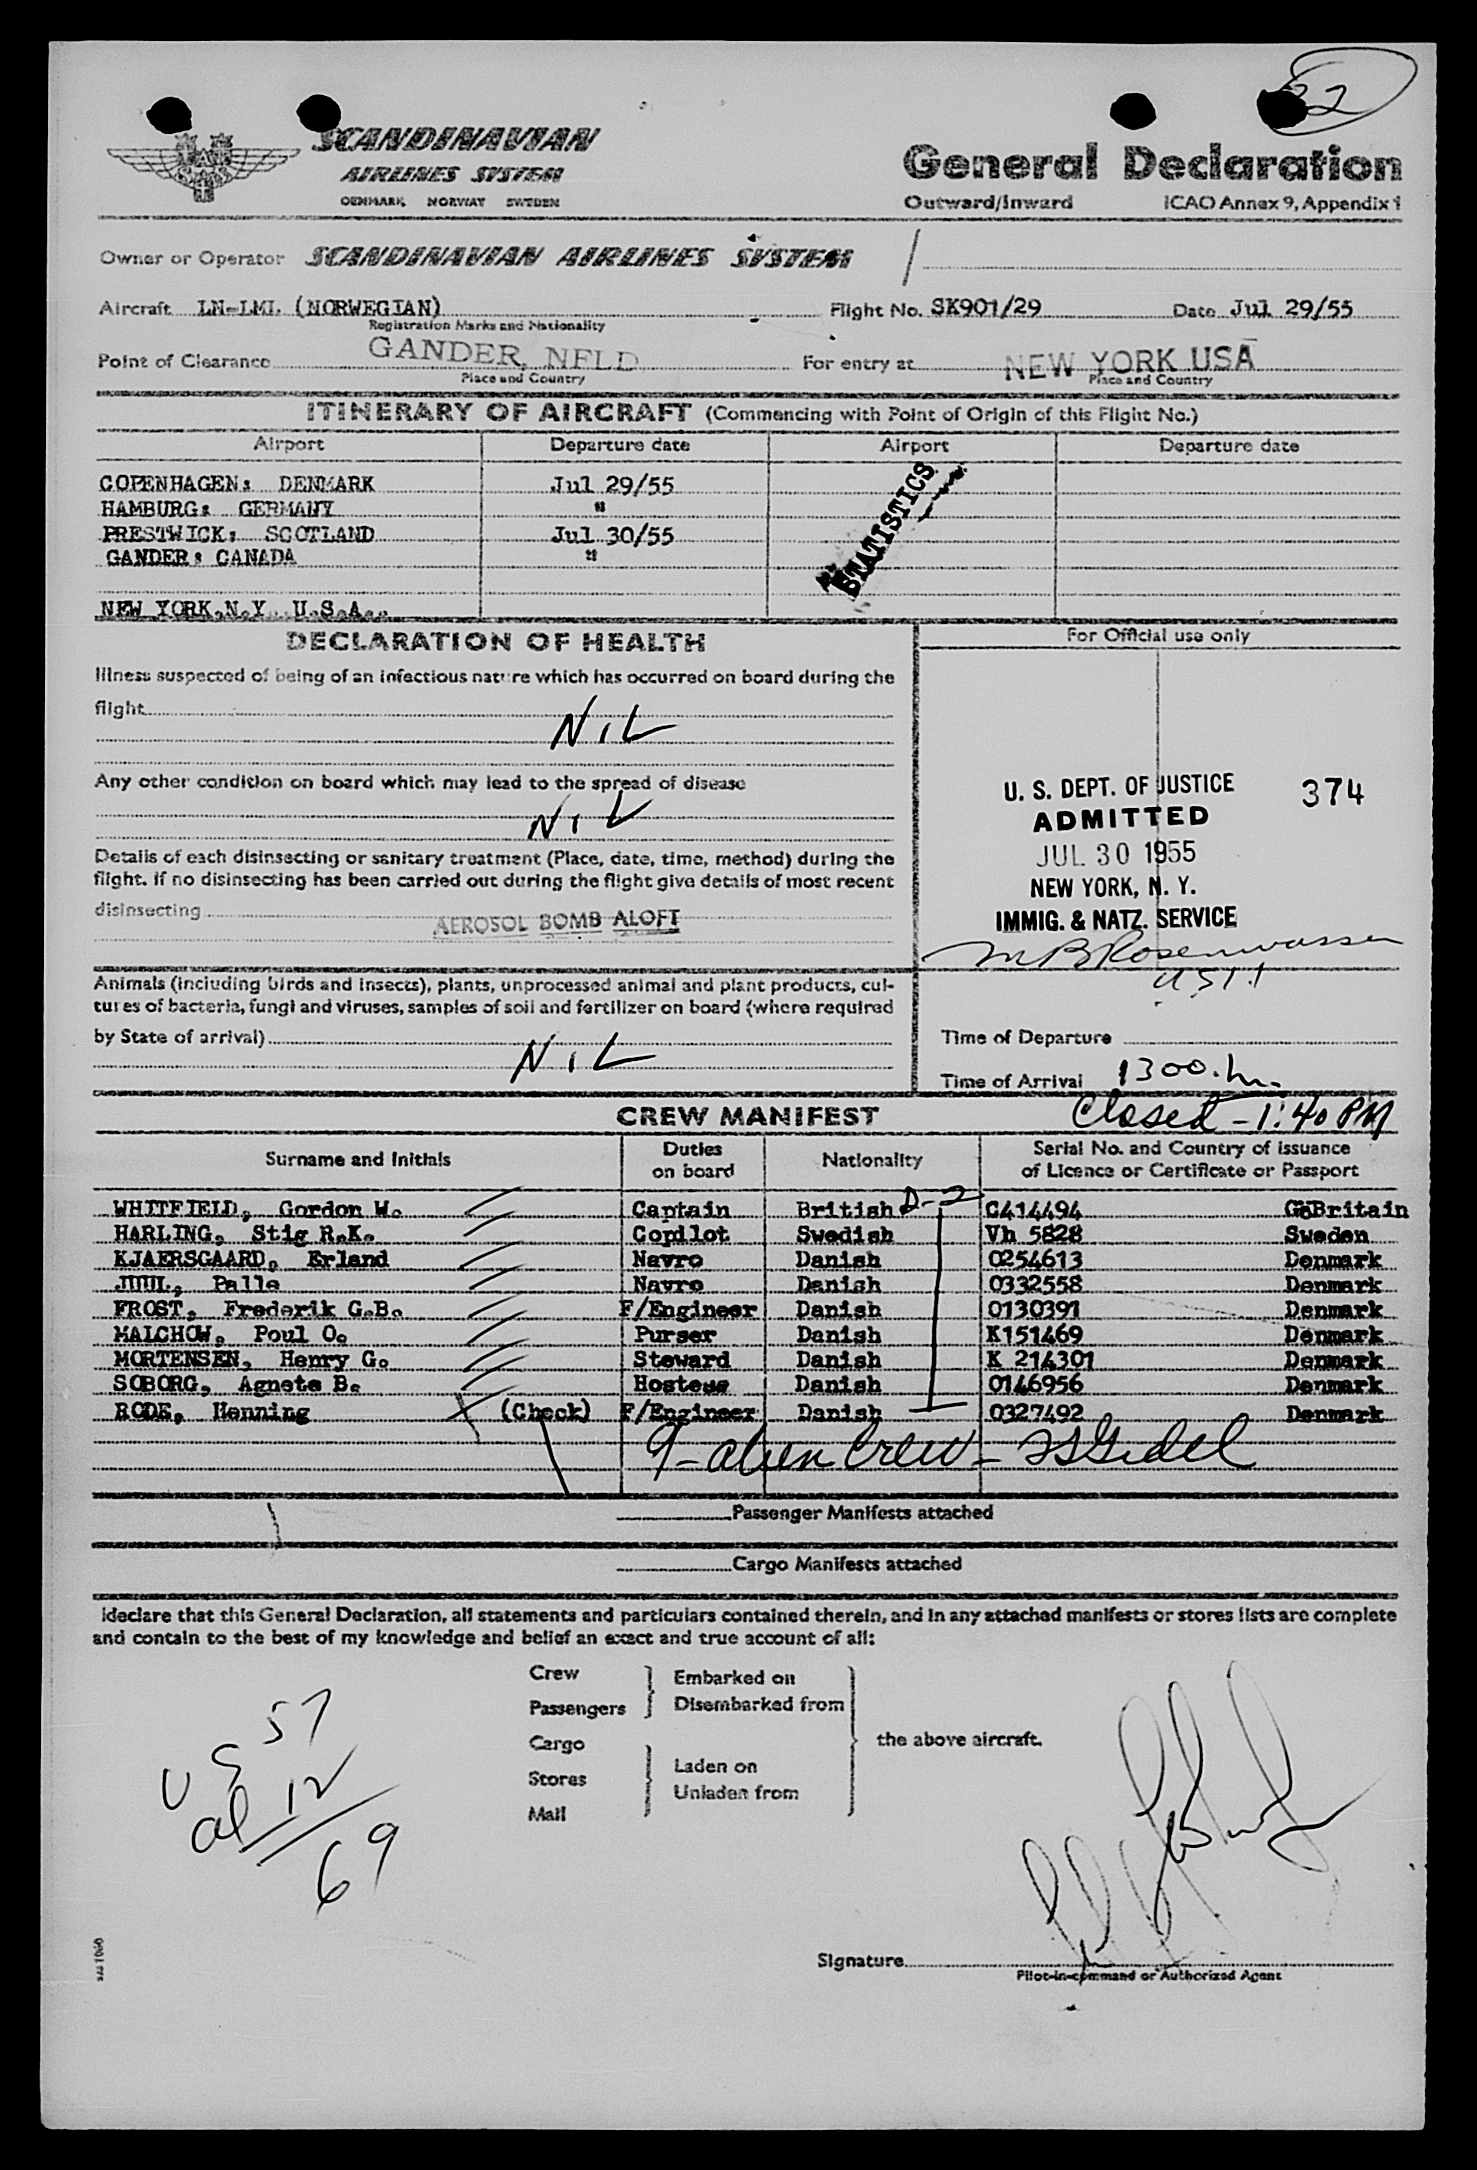 22
SCANDINAVIAN
AIRLINES SYSTEM
DENMARK NORWAY SWEDEN
General Declaration
Outward/Inward ICAO Annex 9, Appendix 1
Owner or Operator SCANDINAVIAN AIRLINES SYSTEM
Aircraft LN-LML (NORWEGIAN) Flight No. SK901/29 Date Jul 29/55
Registration Marks and Nationality
Point of Clearance GANDER, NFLD For entry at NEW YORK USA
Place and Country Place and Country
ITINERARY OF AIRCRAFT (Commencing with Point of Origin of this Flight No.)
Airport Departure date Airport Departure date
COPENHAGEN: DENMARK Jul 29/55
HAMBURG: GERMANY "
PRESTWICK: SCOTLAND Jul 30/55
GANDER: CANADA "
NEW YORK,N.Y. U.S.A..
STATISTICS
DECLARATION OF HEALTH
Illness suspected of being of an infectious nature which has occurred on board during the
flight
NIL
Any other condition on board which may lead to the spread of disease
NIL
Details of each disinsecting or sanitary treatment (Place, date, time, method) during the
flight. If no disinsecting has been carried out during the flight give details of most recent
disinsecting
AEROSOL BOMB ALOFT
Animals (including birds and insects), plants, unprocessed animal and plant products, cul-
tures of bacteria, fungi and viruses, samples of soil and fertilizer on board (where required
by State of arrival)
NIL
For Official use only
U. S. DEPT. OF JUSTICE 374
ADMITTED
JUL 30 1955
NEW YORK, N. Y.
IMMIG. & NATZ. SERVICE
M B Rosenwasser
Time of Departure
Time of Arrival 1300.hr.
Closed - 1:40 PM
CREW MANIFEST
Surname and Initials Duties on board Nationality Serial No. and Country of issuance of Licence or Certificate or Passport
WHITFIELD, Gordon W. Captain British D-2 C414494 G.Britain
HARLING, Stig R.K. Copilot Swedish Vh 5828 Sweden
KJAERSGAARD, Erland Navro Danish 0254613 Denmark
JUUL, Palle Navro Danish 0332558 Denmark
FROST, Frederik G.B. F/Engineer Danish 0130391 Denmark
MALCHOW, Poul O. Purser Danish K151469 Denmark
MORTENSEN, Henry G. Steward Danish K 214301 Denmark
SOBORG, Agnete B. Hostess Danish 0146956 Denmark
RODE, Henning (Check) F/Engineer Danish 0327492 Denmark
9-alien Crew-
Passenger Manifests attached
Cargo Manifests attached
I declare that this General Declaration, all statements and particulars contained therein, and in any attached manifests or stores lists are complete
and contain to the best of my knowledge and belief an exact and true account of all:
Crew
Passengers
Embarked on
Disembarked from
Cargo
Stores
Mail
Laden on
Unladen from
the above aircraft.
US 57
al 12
69
Signature
Pilot-in-command or Authorized Agent